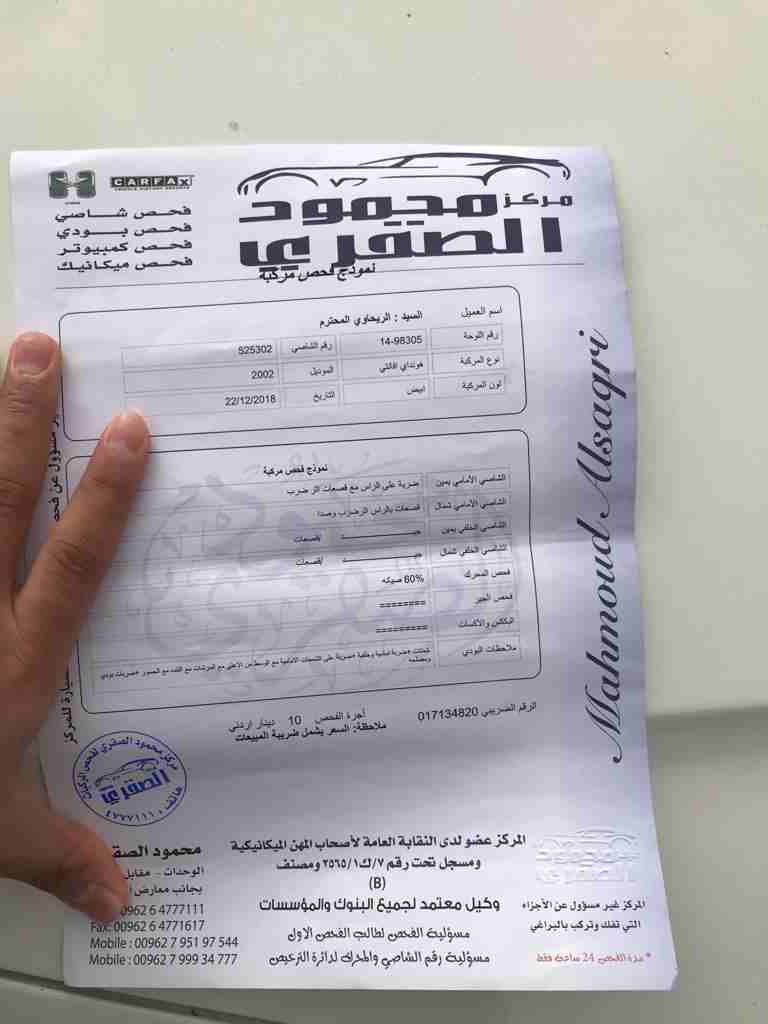 CARFAX
VEHICLE HISTORY REPORTS
فحص شاصي
فحص بودي
فحص كمبيوتر
فحص ميكانيك
مركز محمود
الصقري
نموذج فحص مركبة
اسم العميل السيد : الريحاوي المحترم
رقم اللوحة 14-98305 رقم الشاصي 525302
نوع المركبة هونداي افانتي الموديل 2002
لون المركبة ابيض التاريخ 22/12/2018
نموذج فحص مركبة
الشاصي الأمامي يمين ضربة على الراس مع قصعات اثر ضرب
الشاصي الأمامي شمال قصعات بالراس اثرضرب وصدا
الشاصي الخلفي يمين جيد بقصعات
الشاصي الخلفي شمال جيد بقصعات
فحص المحرك 60% صيانه
فحص الجير ========
البكاس والاكسات =========
ملاحظات البودي
الرقم الضريبي 017134820 أجرة الفحص 10 دينار اردني
ملاحظة: السعر يشمل ضريبة المبيعات
Mahmoud Alsaqri
مركز محمود الصقري لفحص المركبات
الصقري
هاتف: ٤٧٧٧١١١
سيارة للمركز
مسؤول عن فحص
المركز عضو لدى النقابة العامة لأصحاب المهن الميكانيكية
ومسجل تحت رقم ٧/ك٢٥٦٥/١ ومصنف
(B)
وكيل معتمد لجميع البنوك والمؤسسات
مسؤلية الفحص لطالب الفحص الاول
مسؤلية رقم الشاصي والمحرك لدائرة الترخيص
محمود الصق
الوحدات - مقابل
بجانب معارض
00962 6 4777111
Fax: 00962 6 4771617
Mobile : 00962 7 951 97 544
Mobile : 00962 7 999 34 777
المركز غير مسؤول عن الأجزاء
التي تفك وتركب بالبراغي
* مدة الفحص 24 ساعة فقط